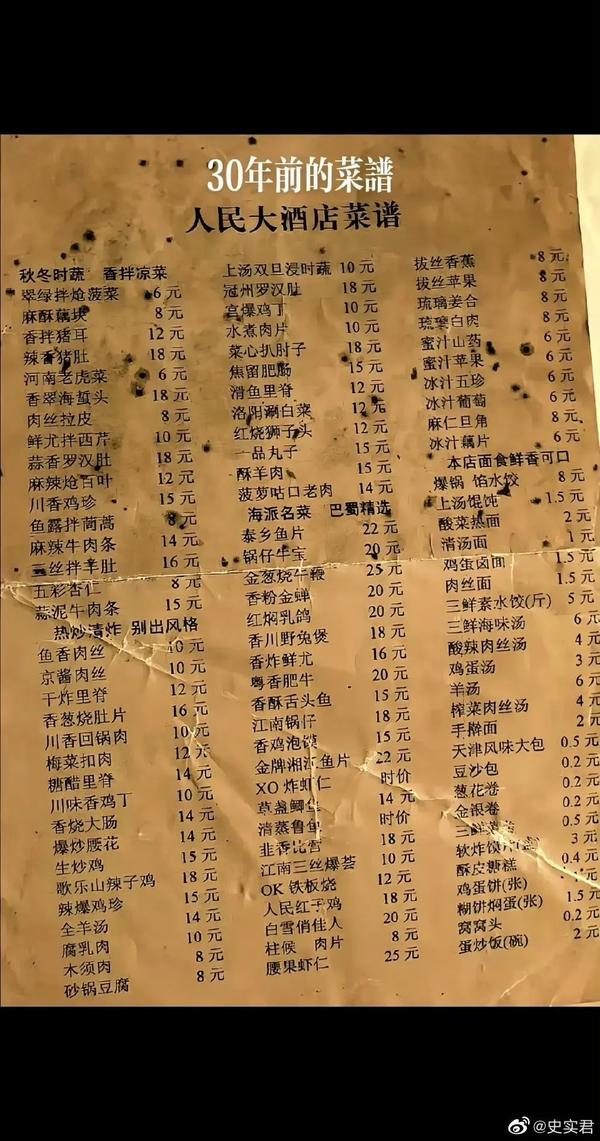 30年前的菜譜
人民大酒店菜谱
秋冬时蔬 香拌凉菜
翠绿拌炝菠菜 6元
麻酥藕块 8元
香拌猪耳 12元
辣香猪肚 18元
河南老虎菜 6元
香翠海蜇头 18元
肉丝拉皮 8元
鲜尤拌西芹 10元
蒜香罗汉肚 18元
麻辣炝百叶 12元
川香鸡珍 15元
鱼露拌茼蒿 8元
麻辣牛肉条 14元
三丝拌羊肚 16元
五彩杏仁 8元
蒜泥牛肉条 15元
热炒清炸 别出风格
鱼香肉丝 10元
京酱肉丝 10元
干炸里脊 12元
香葱烧肚片 16元
川香回锅肉 10元
梅菜扣肉 12元
糖醋里脊 14元
川味香鸡丁 10元
香烧大肠 14元
爆炒腰花 14元
生炒鸡 15元
歌乐山辣子鸡 18元
辣爆鸡珍 15元
全羊汤 14元
腐乳肉 10元
木须肉 8元
砂锅豆腐 8元
上汤双旦浸时蔬 10元
冠州罗汉肚 18元
宫爆鸡丁 10元
水煮肉片 10元
菜心扒肘子 18元
焦留肥肠 15元
滑鱼里脊 12元
洛阳涮白菜 12元
红烧狮子头 12元
一品丸子 15元
酥羊肉 15元
菠萝咕口老肉 14元
海派名菜 巴蜀精选
泰乡鱼片 22元
锅仔牛宝 20元
金葱烧牛鞭 25元
香粉金蝉 20元
红焖乳鸽 20元
香川野兔煲 18元
香炸鲜尤 16元
粤香肥牛 20元
香酥舌头鱼 15元
江南锅仔 18元
香鸡泡馍 15元
金牌湘江鱼片 22元
XO炸虾仁 时价
草盏鲫鱼 14元
清蒸鲁鱼 时价
韭香比宫 18元
江南三丝爆荟 10元
OK铁板烧 12元
人民红干鸡 18元
白雪俏佳人 20元
柱候 肉片 8元
腰果虾仁 25元
拔丝香蕉 8元
拔丝苹果 8元
琉璃姜合 8元
琉璃白肉 8元
蜜汁山药 8元
蜜汁苹果 8元
冰汁五珍 8元
冰汁葡萄 8元
麻仁旦角 8元
冰汁藕片 6元
本店面食鲜香可口
爆锅 馅水饺 8元
上汤馄饨 1.5元
酸菜热面 2元
清汤面 1元
鸡蛋卤面 1.5元
肉丝面 1.5元
三鲜素水饺(斤) 5元
三鲜海味汤 6元
酸辣肉丝汤 4元
鸡蛋汤 3元
羊汤 6元
榨菜肉丝汤 4元
手擀面 2元
天津风味大包 0.5元
豆沙包 0.2元
葱花卷 0.2元
金银卷 0.5元
三鲜 3元
软炸馍片 0.4元
酥皮糖糕 1元
鸡蛋饼(张) 1.5元
糊饼焖蛋(张) 0.2元
窝窝头 2元
蛋炒饭(碗)
@史实君